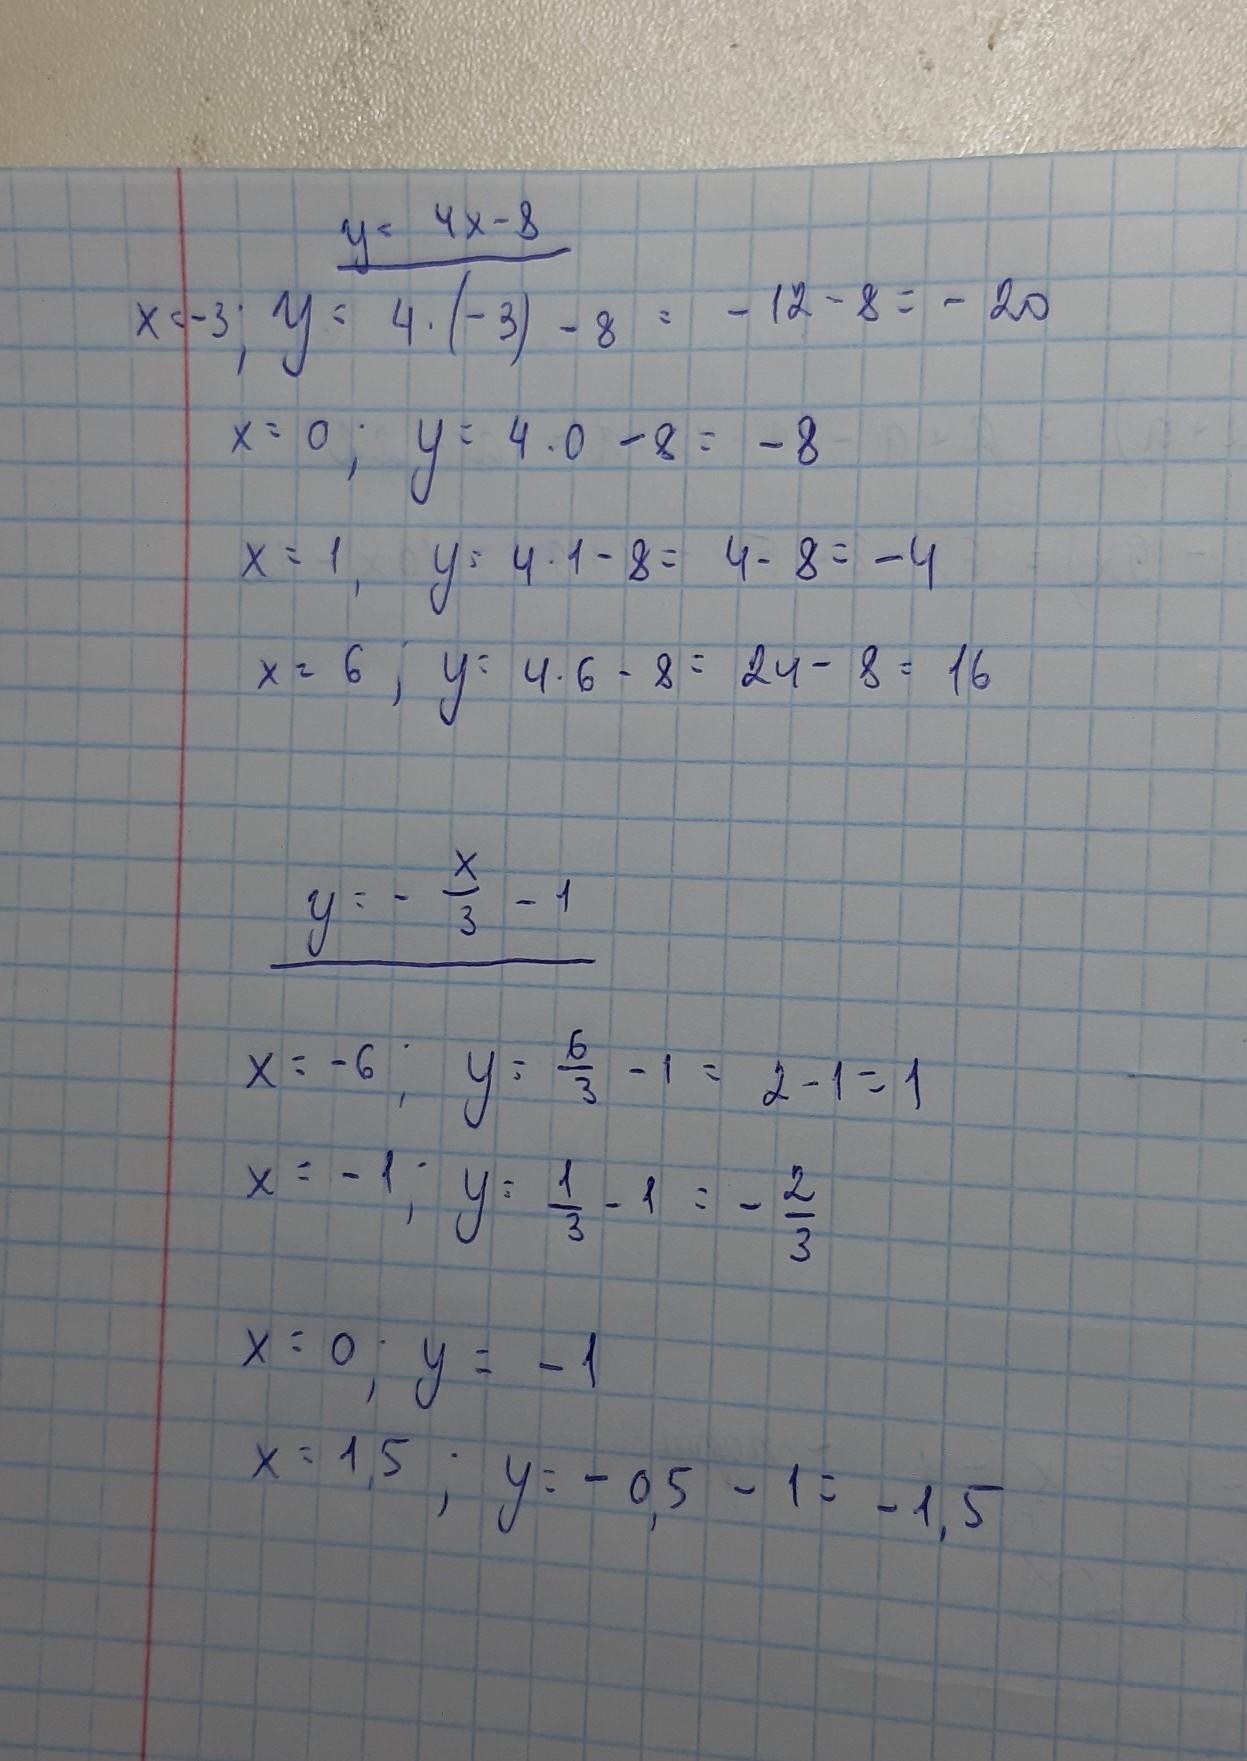 y = 4x - 8
x = -3; y = 4 · (-3) - 8 = -12 - 8 = -20
x = 0; y = 4 · 0 - 8 = -8
x = 1, y = 4 · 1 - 8 = 4 - 8 = -4
x = 6; y = 4 · 6 - 8 = 24 - 8 = 16
y = - x/3 - 1
x = -6; y = 6/3 - 1 = 2 - 1 = 1
x = -1; y = 1/3 - 1 = - 2/3
x = 0; y = -1
x = 1,5; y = -0,5 - 1 = -1,5